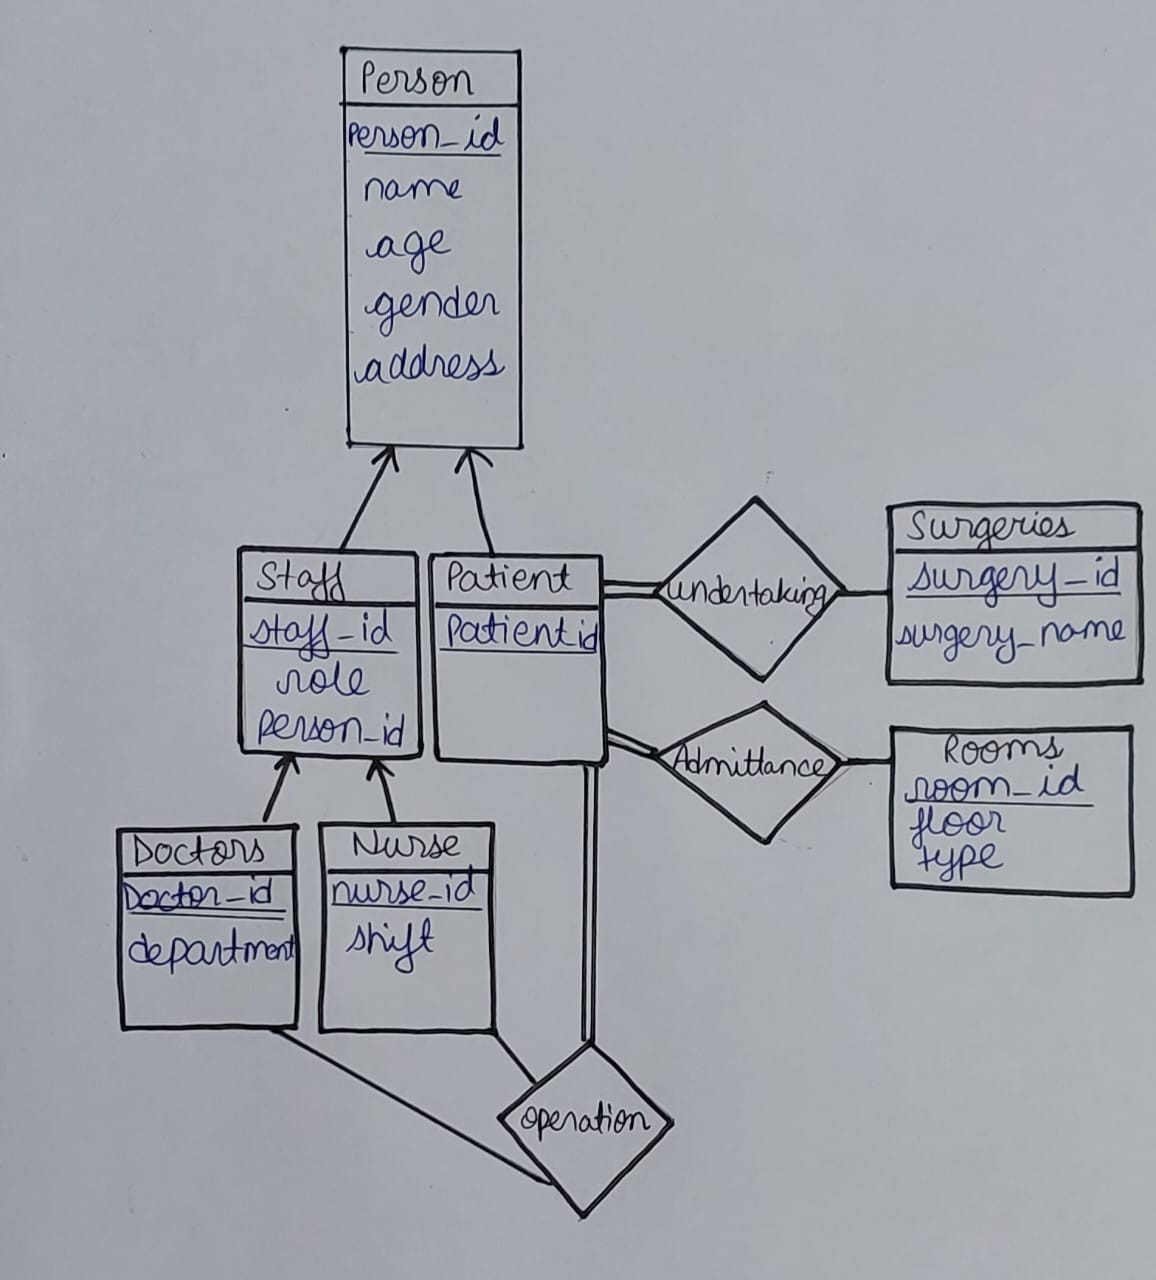 Person
person_id
name
age
gender
address
Staff
staff_id
role
person_id
Patient
Patient id
undertaking
Surgeries
surgery_id
surgery_name
Admittance
Rooms
room_id
floor
type
Doctors
Doctor_id
department
Nurse
nurse_id
shift
operation